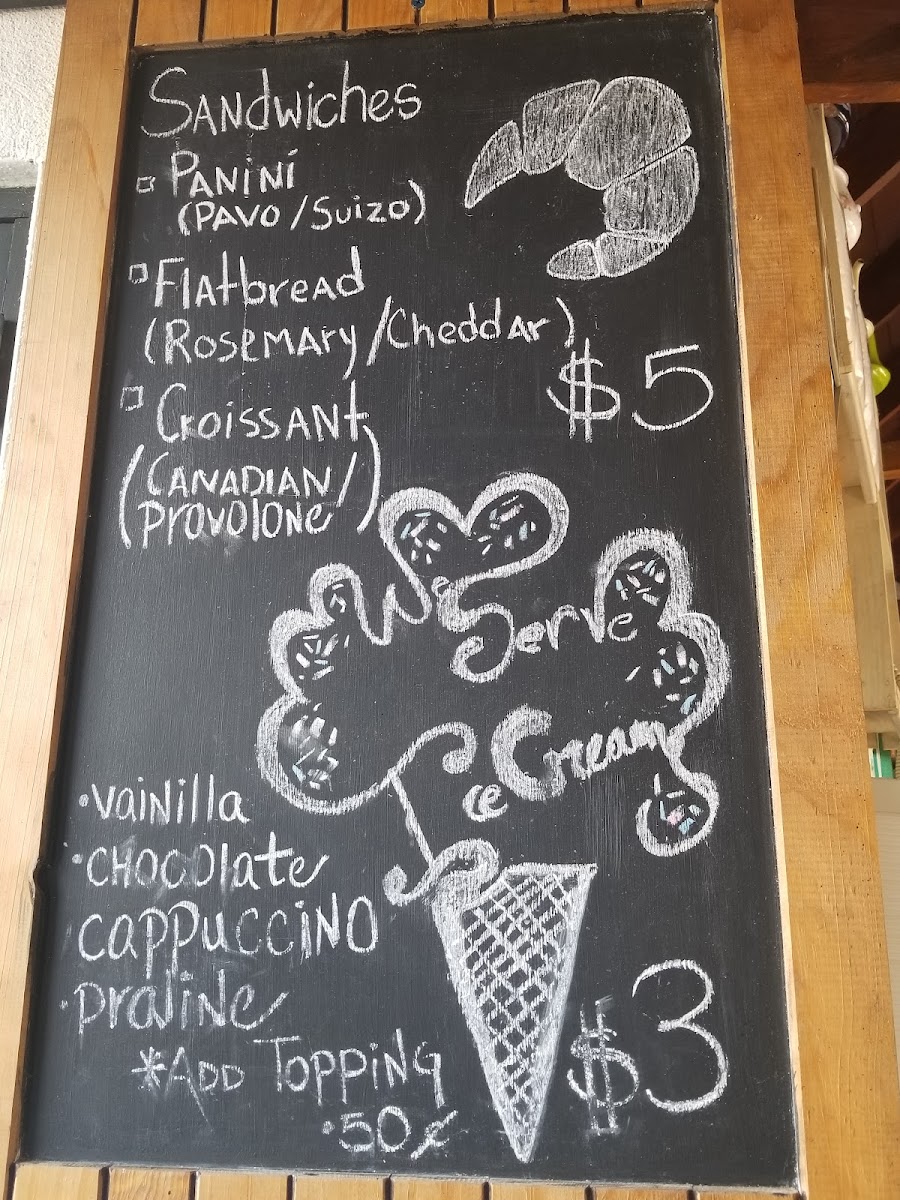 SANdwiches
▫ PANiNi
(PAVO/Suizo)
▫ FlAtbreAd
(ROSEMARY/Cheddar)
$5
▫ CroissANt
(CANADIAN/
provoloNe)
We Serve
Ice Cream
• vaiNilla
• cHocolate
cappucciNo
• praliNe
*ADD TOPPiNg
•50¢
$3